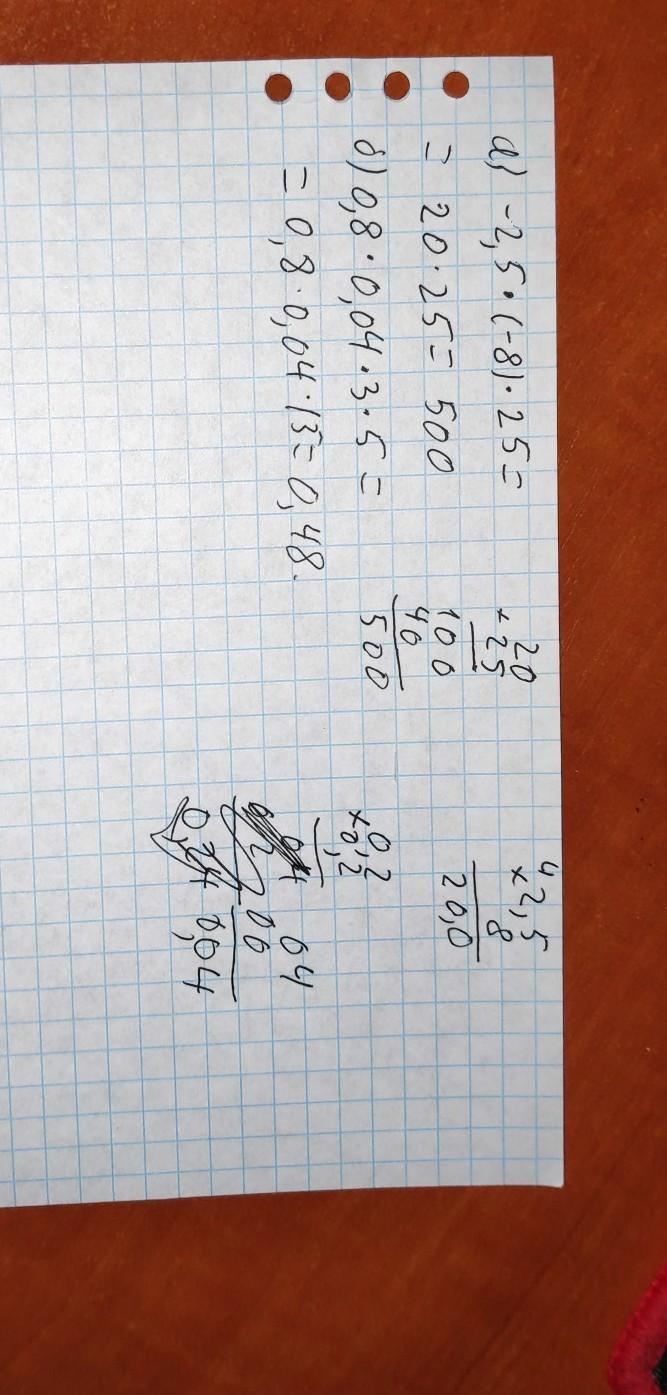 а) -2,5·(-8)·25=
= 20·25= 500
б) 0,8·0,04·3·5=
= 0,8·0,04·15=0,48.
20
×25
100
40
500
4
×2,5
8
20,0
0,2
×0,2
04
00
0,04